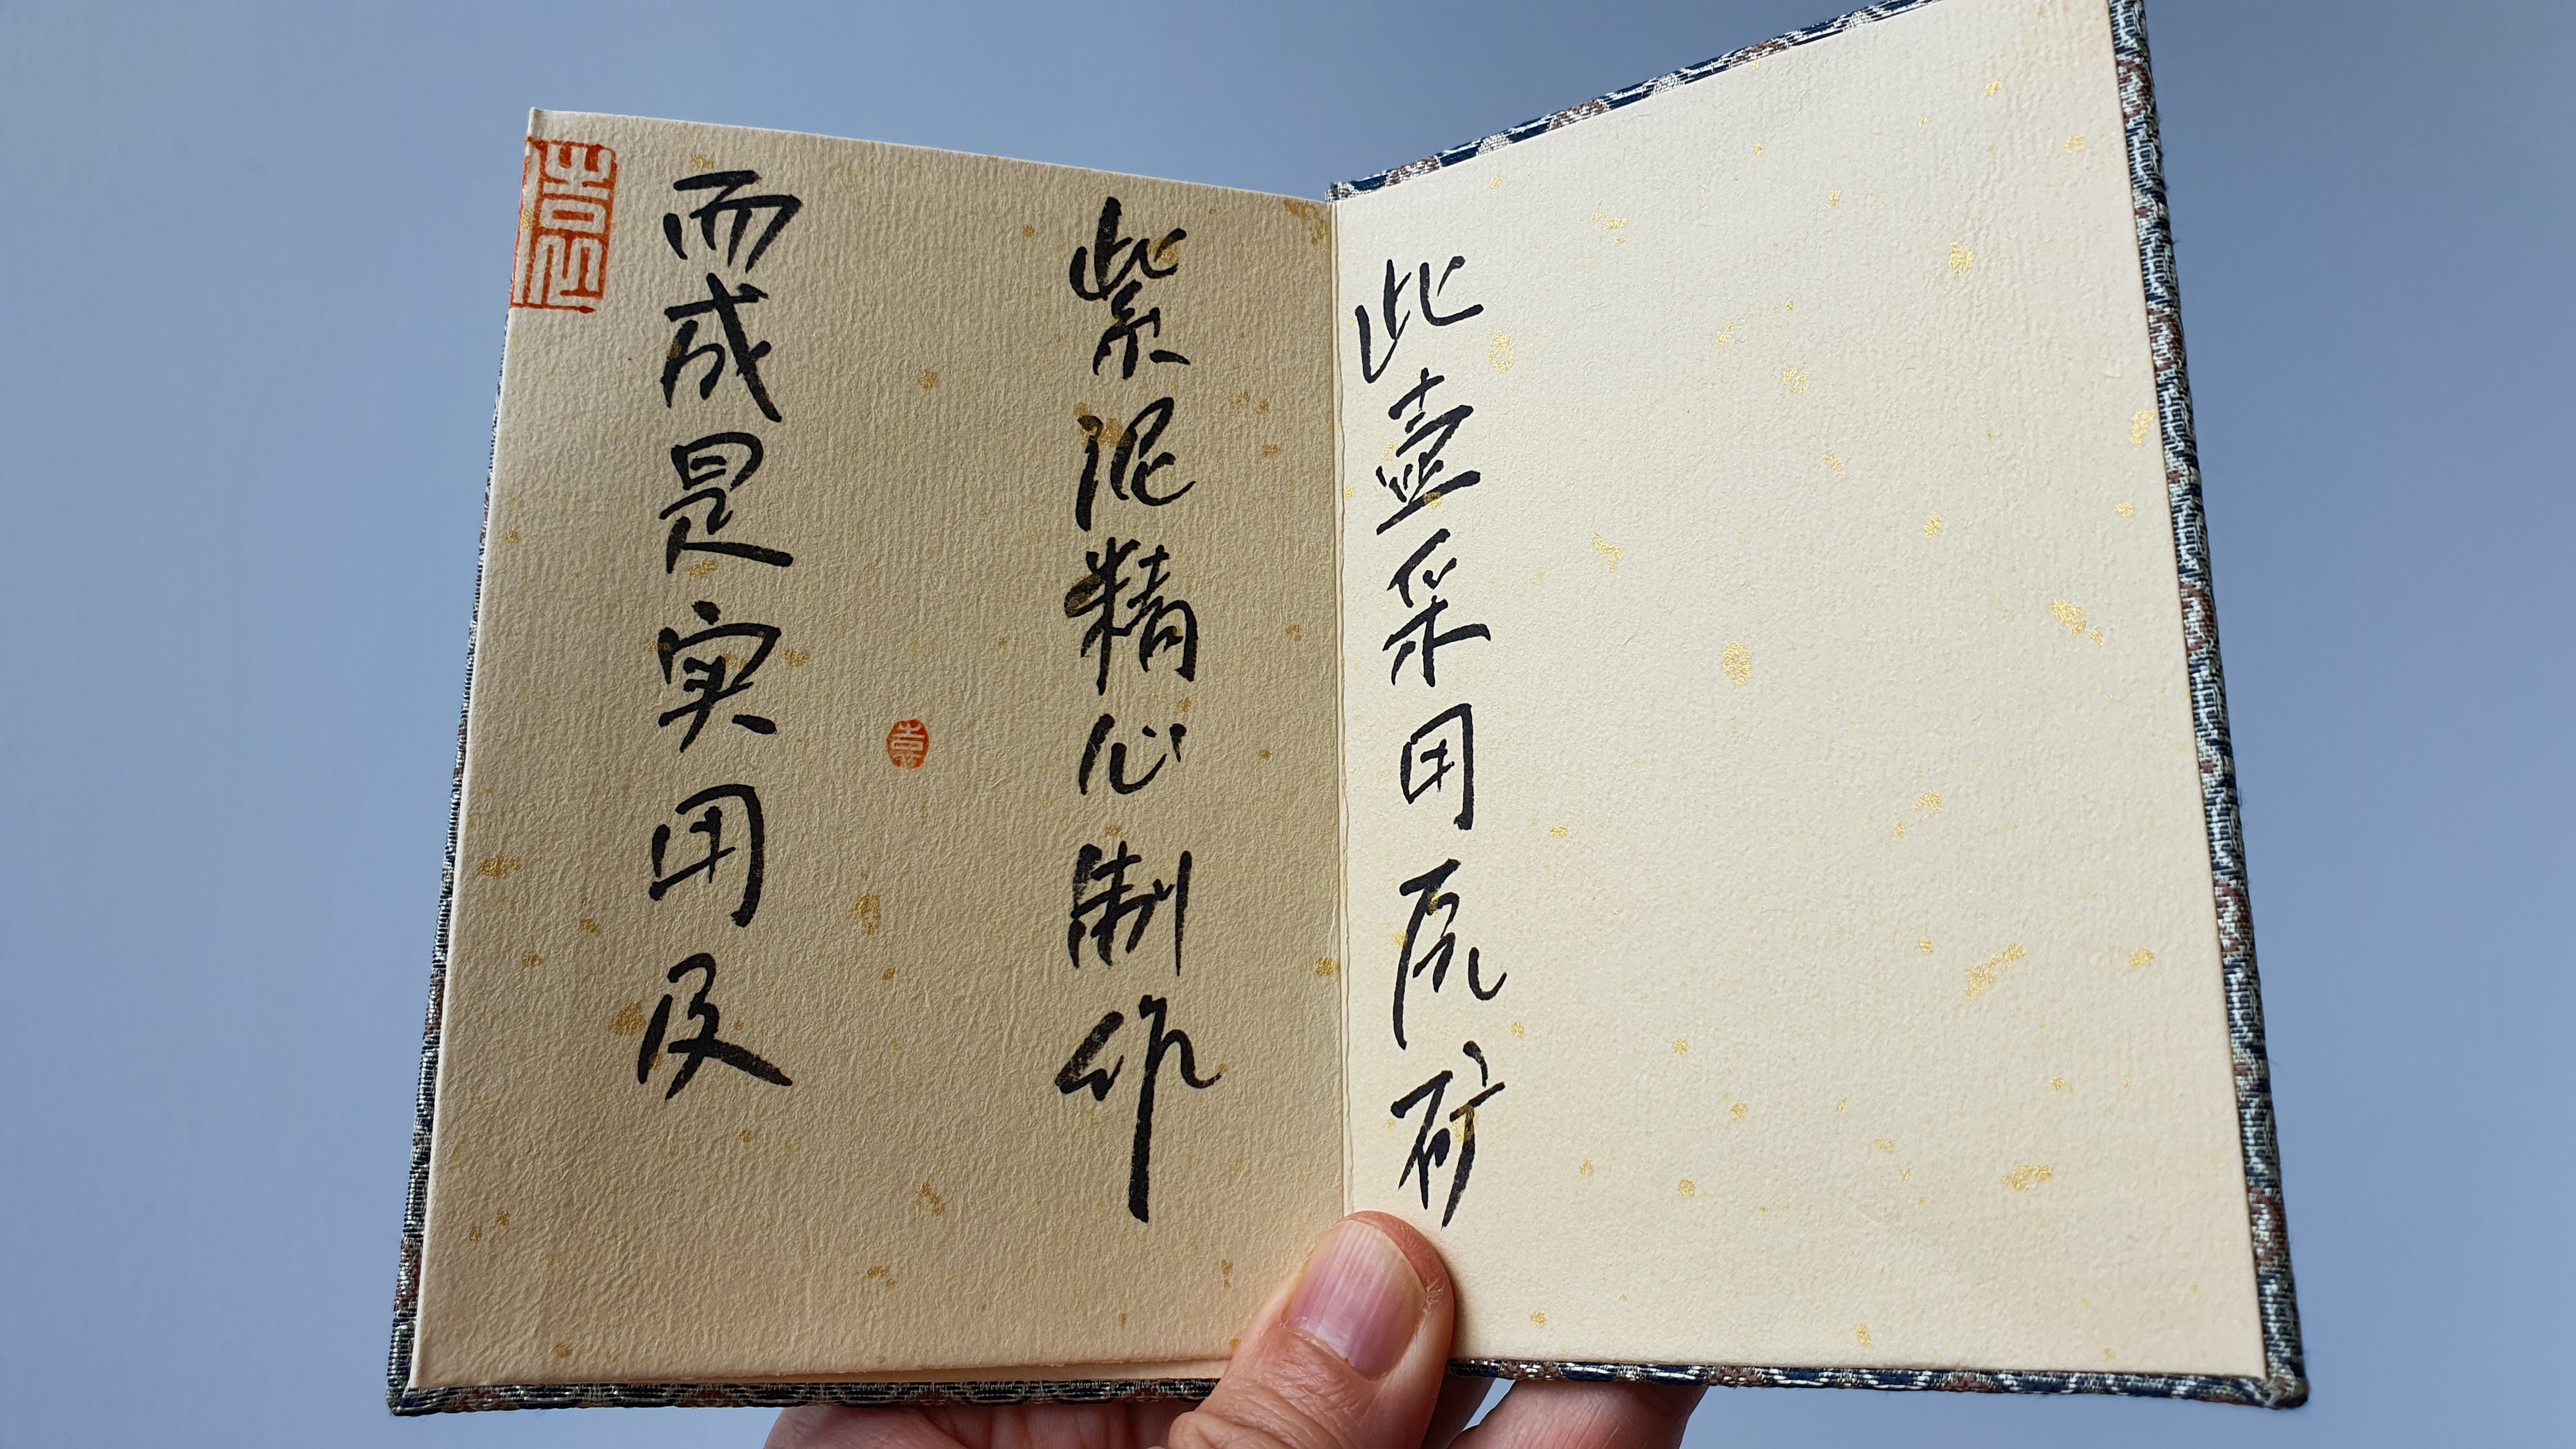 此壶采用原矿
紫泥精心制作
而成是实用及
袁